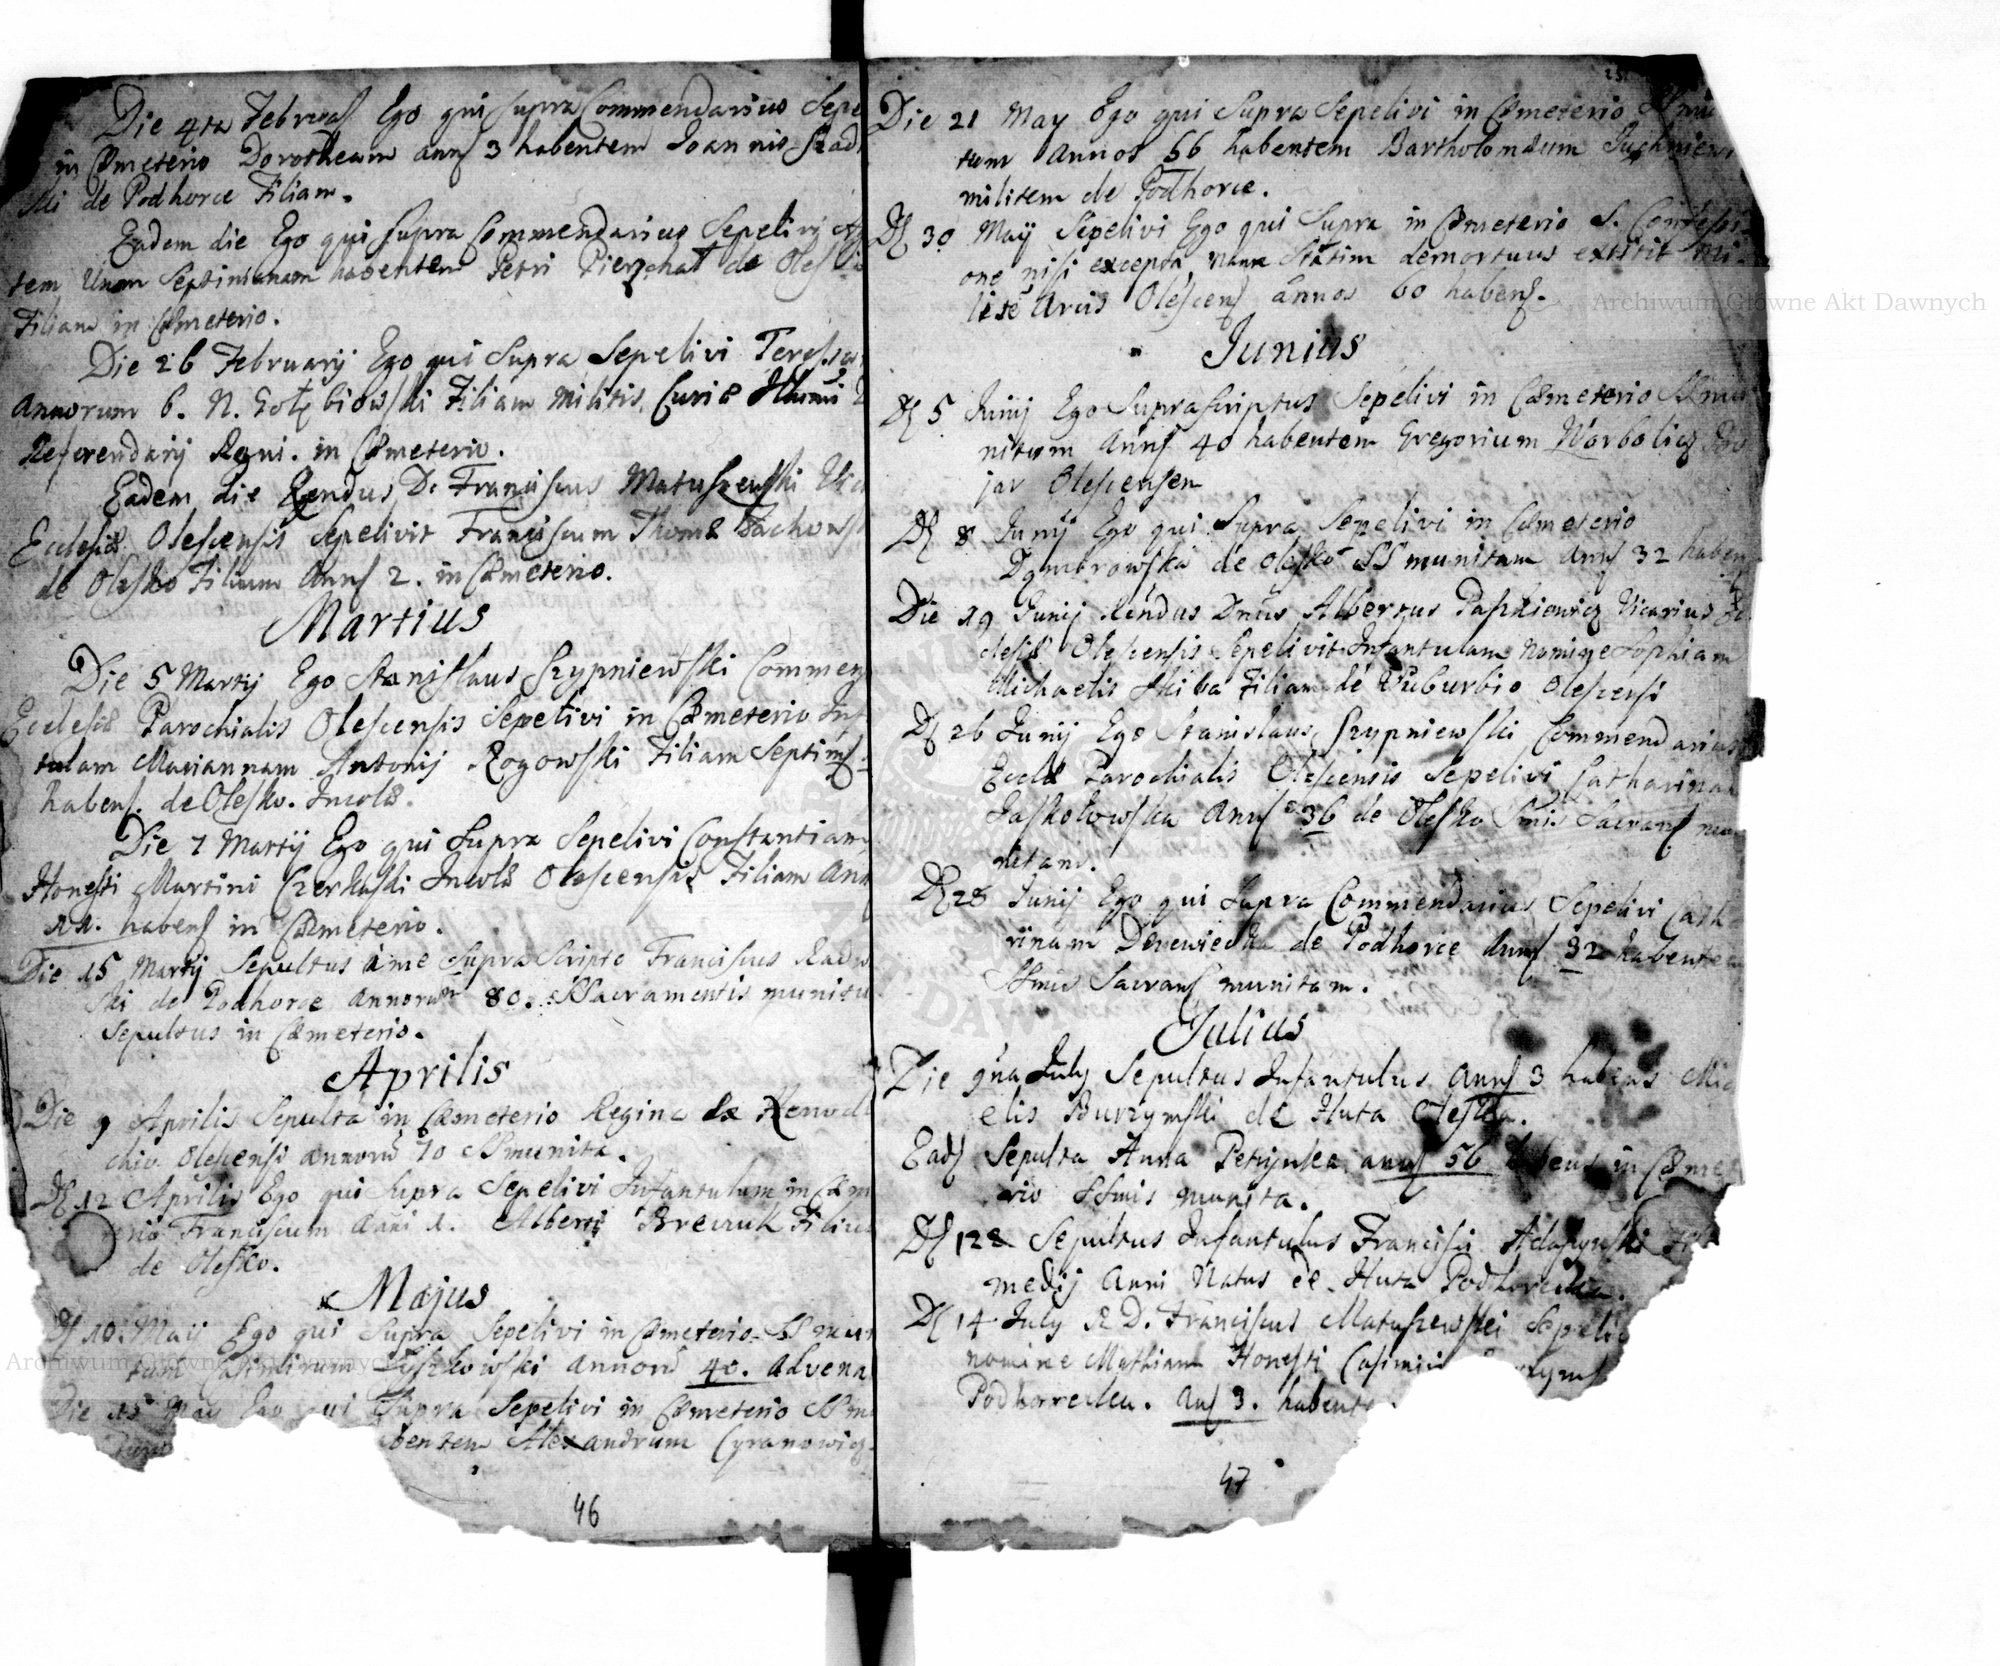 Die 4ta Februar Ego qui supra Commendarius Sepe
in Cæmeterio Dorotheam ann 3 habentem Joannis Szad
ski de Podhorce Filiam.
Eadem die Ego qui supra Commendarius Sepelivi
tem Unam Septimanam habentem Petri Pierzchał de Oles
Filiam in Cæmeterio.
Die 26 Februarij Ego qui supra Sepelivi Teressam
Annorum 6. N. Gołębiowski Filiam Militis Curiæ Illmi
Referendarij Regni. in Cæmeterio.
Eadem die Rendus D. Franciscus Matuszewski Vic
Ecclesiæ Olescensis Sepelivit Franciscum Thomæ Bachows
de Olesko Filium Ann 2. in Cæmeterio.
Martius
Die 5 Martij Ego Stanislaus Szypniewski Commen
Ecclesiæ Parochialis Olescensis Sepelivi in Cæmeterio Inf
tulam Mariannam Antonij Rogowski Filiam Septim
haben. de Olesko. Incolæ.
Die 7 Martij Ego qui Supra Sepelivi Constantiam
Honesti Martini Czerkaski Incolæ Olescensis Filiam Ann
11. haben in Cæmeterio.
Die 15 Martij Sepultus a me Supra Scripto Franciscus Radw
ski de Podhorce annorum 80. SSacramentis munitu
Sepultus in Cæmeterio.
Aprilis
Die 9 Aprilis Sepulta in Cæmeterio Regina
chio Olescensi annorum 70 SS munita.
D 12 Aprilis Ego qui supra Sepelivi Infantulum in Cæm
terio Franciscum anni 1. Alberti Filiu
de Olesko.
Majus
D 10. Maij Ego qui Supra Sepelivi in Cæmeterio SS mun
tum Casimirum annorum 40. Advena
Die May Ego qui Supra Sepelivi in Cæmeterio SS m
bentem Alexandrum Cyranowicz
46
Die 21 May Ego qui Supra Sepelivi in Cæmeterio SS mu
tum annos 56 habentem Bartholomæum
militem de Podhorce.
D 30 Maij Sepelivi Ego qui Supra in Cæmeterio S. Confessi-
one nisi excepta, nam Statim demortuus extitit Mi-
lite Arcis Olescens annos 60 habens.
Junius
D 5 Junij Ego Suprascriptus Sepelivi in Cæmeterio SS
nitum Ann 40 habentem Gregorium Warbolicz
jar Olescensem
D 8 Junij Ego qui Supra Sepelivi in Cæmeterio
Dąmbrowska de Olesko SS munitam ann 32 haben
Die 19 Junij Rendus Dnus Albertus Paszkiewicz Vicarius Ec
clesiæ Olescensis Sepelivit Infantulam Nomine Sophiam
Michaelis Skiba Filiam de Suburbio Olescensi
D 26 Junij Ego Stanislaus Szypniewski Commendarius
Eccle Parochialis Olescensis Sepelivi Catharinam
Jaskołowska Ann 36 de Olesko Smis Sacram mu
nitam.
D 28 Junij Ego qui Supra Commendarius Sepelivi Cath
rinam Derewiecka de Podhorce Ann 32 habentem
SSmis Sacram munitam.
Julius
Die 9na July Sepultus Infantulus Ann 3 habens Mich
elis Burzymski de Huta Oleska.
Ead Sepulta Anna Petrynka ann 56 habens in Cæmet
rio SSmis munita.
D 12 Sepultus Infantulus Francisci Adaszynski Fil
medij Anni Natus de Huta Podhorecka.
D 14 July R D. Franciscus Matuszewski Sepeli
nomine Mathiam Honesti Casimiri
Podhorrecka. An 3. habent
47
Archiwum Główne Akt Dawnych
Archiwum Główne Akt Dawnych